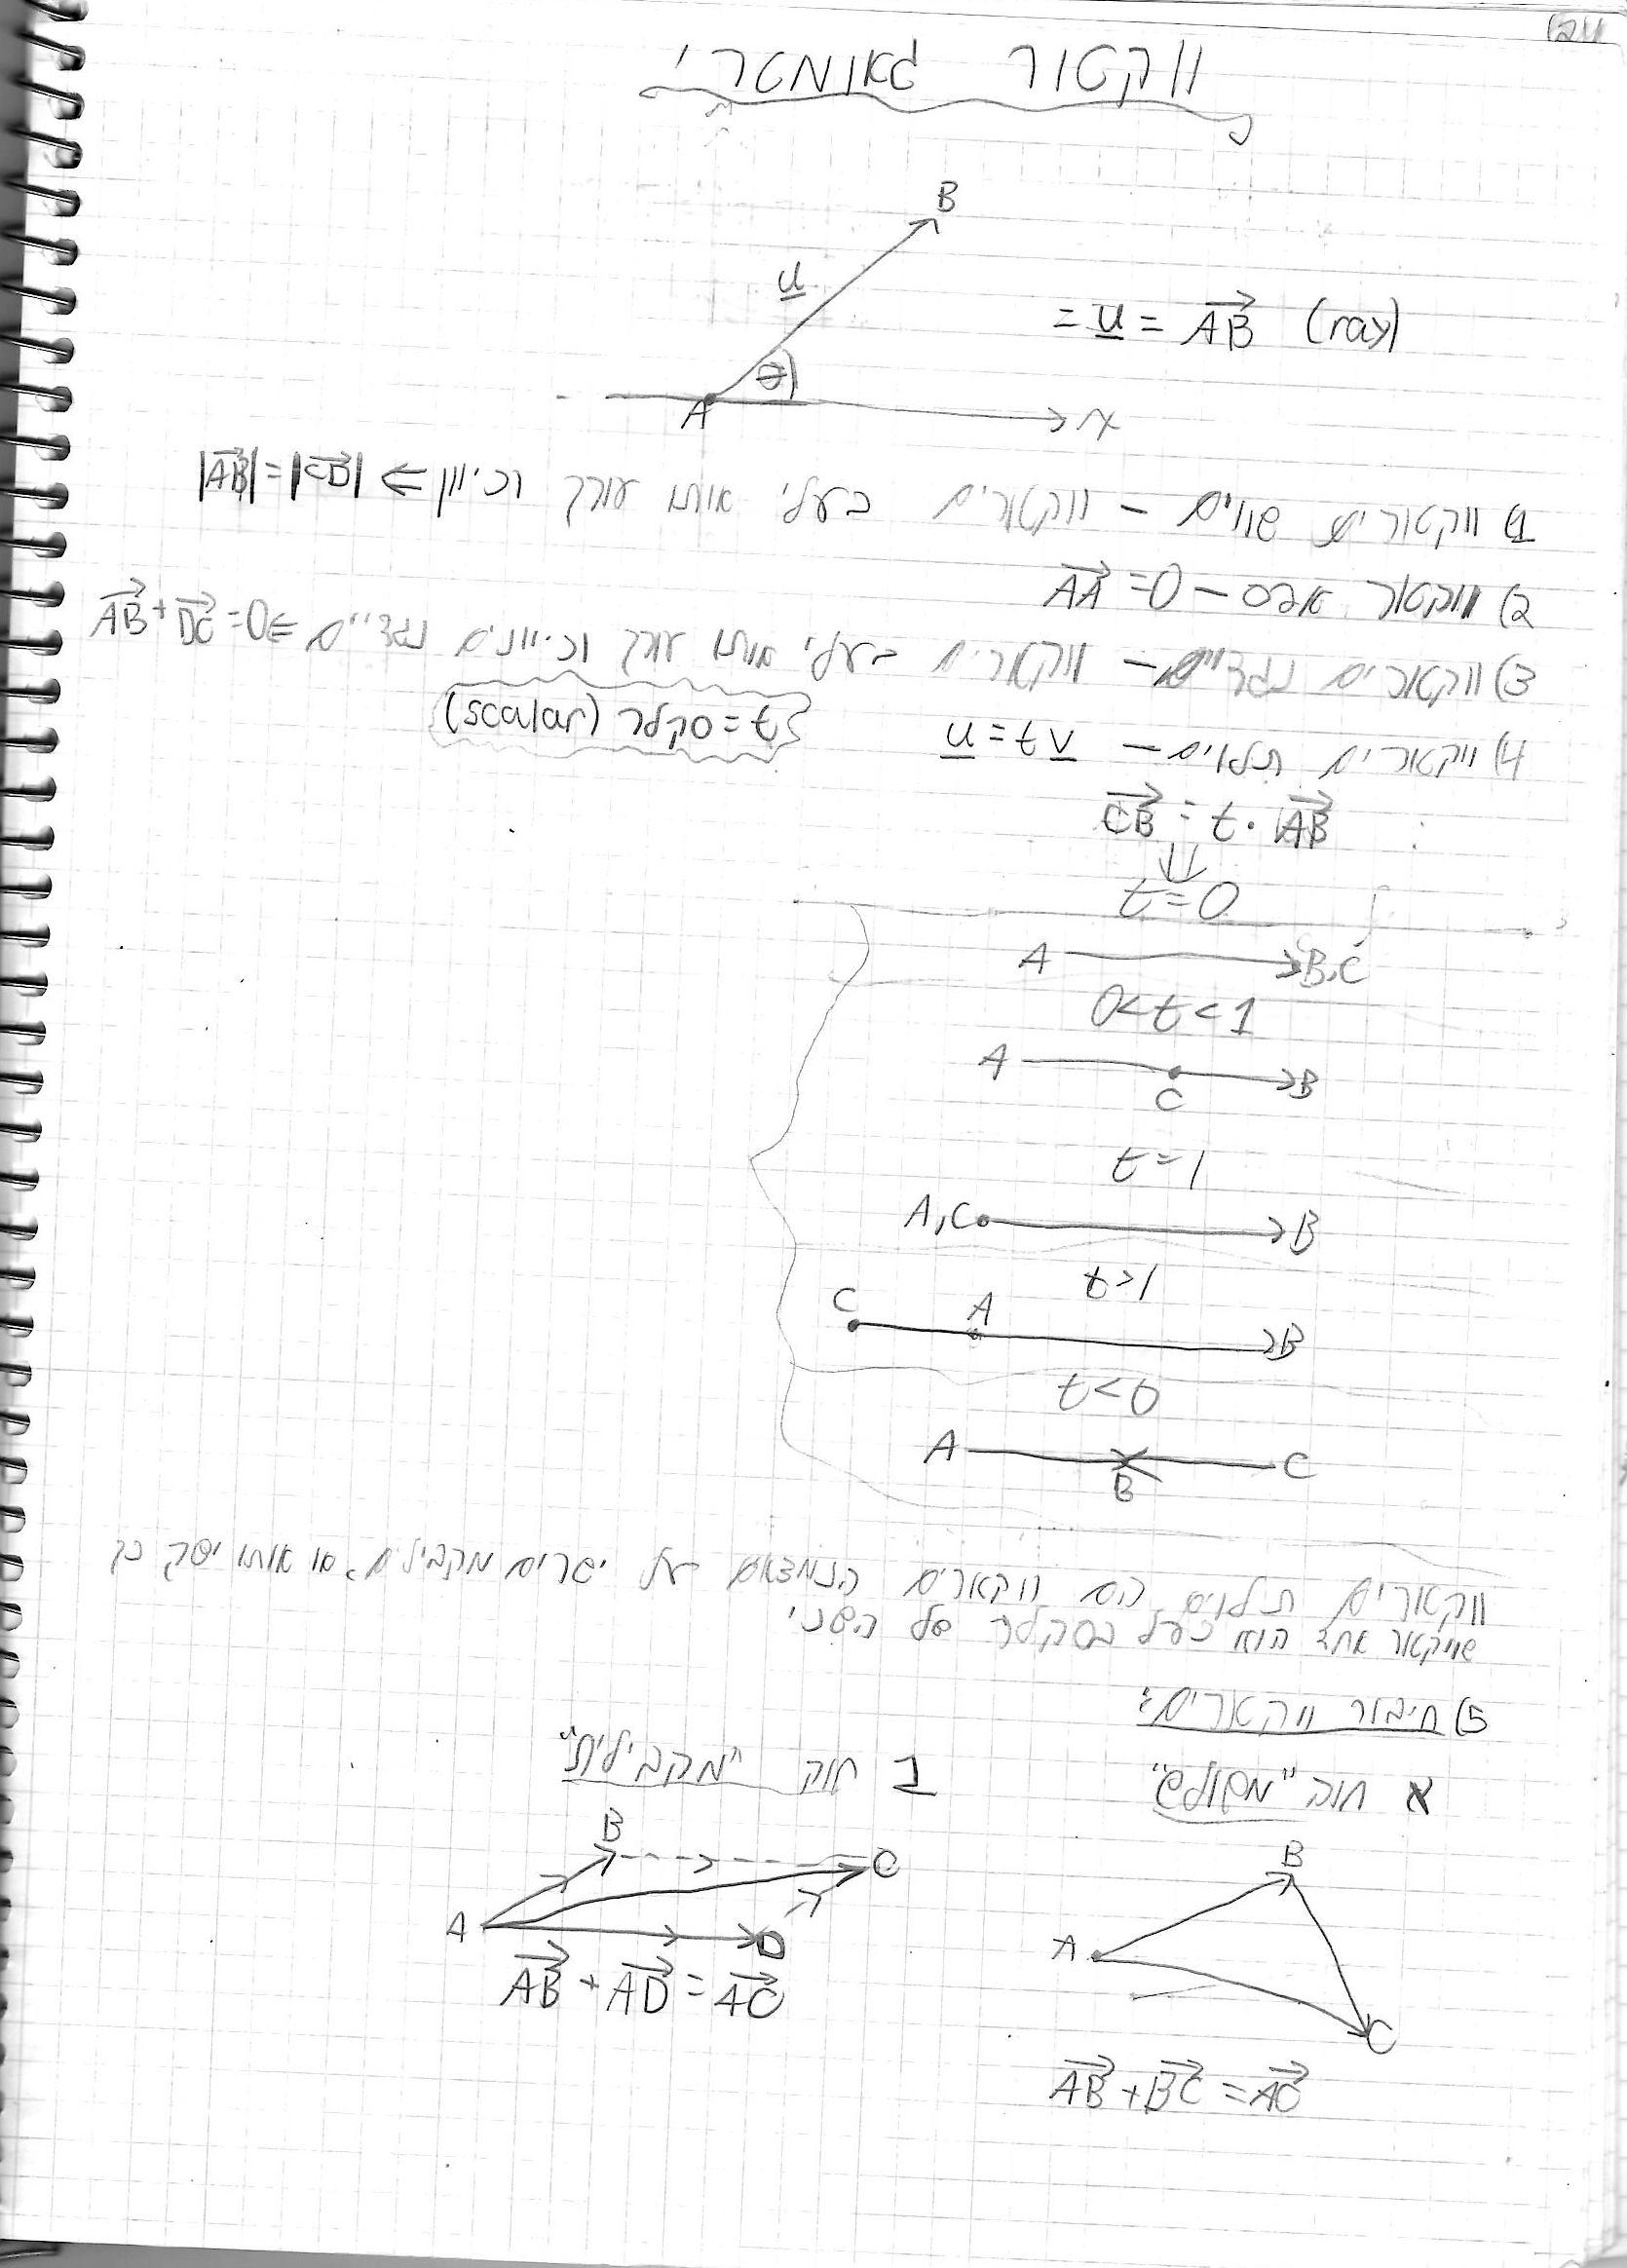 ווקטור גאומטרי
B
u
= u = AB (ray)
θ
A
x
1) ווקטורים שווים – ווקטורים בעלי אותו אורך וכיוון ⇐ |AB|=|CD|
2) ווקטור אפס – AA=0
3) ווקטורים נגדיים – ווקטורים בעלי אותו אורך וכיוונים נגדיים ⇐ AB+DC=0
4) ווקטורים תלויים – u=tv
t=סקלר (scalar)
CB = t·AB
⇓
t=0
A B,C
0<t<1
A C B
t=1
A,C B
t>1
C A B
t<0
A B C
ווקטורים תלוים הם ווקטורים הנמצאים על ישרים מקבילים, או אותו ישר כך
שווקטור אחד הוא כפל בסקלר של השני
5) חיבור ווקטורים:
א חוק "משולש"
B
A
C
AB+BC=AC
ב חוק "מקבילית"
B
C
A
D
AB+AD=AC